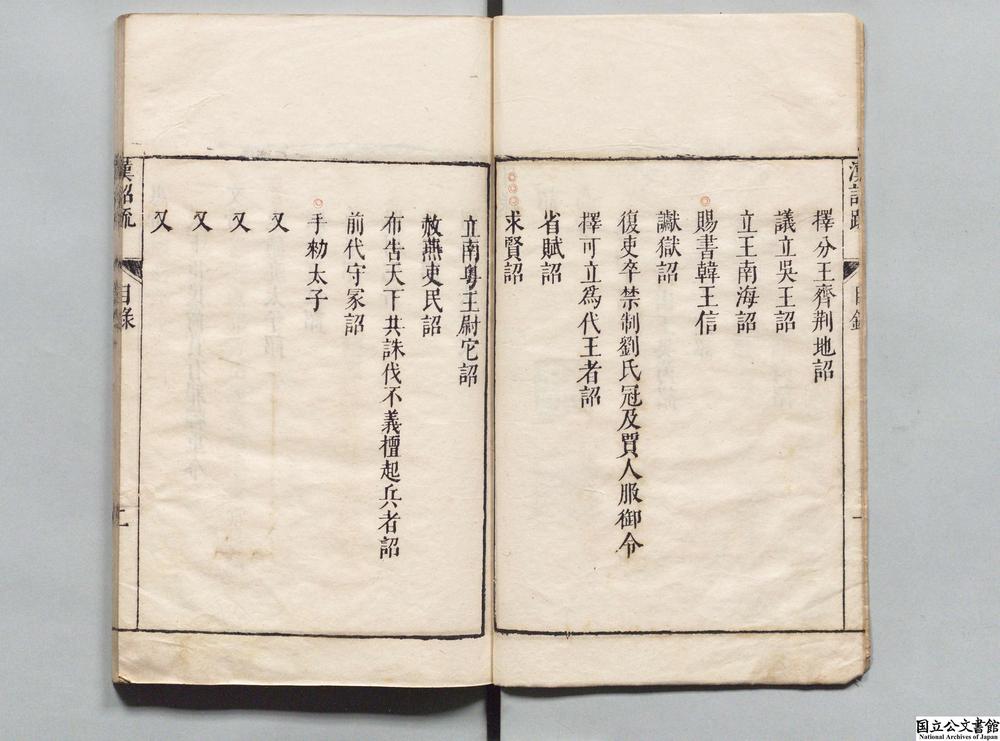 漢詔疏
目錄
一
擇分王齊荆地詔
議立吳王詔
立王南海詔
賜書韓王信
讞獄詔
復吏卒禁制劉氏冠及賈人服御令
擇可立爲代王者詔
省賦詔
求賢詔
立南粵王尉它詔
赦燕吏民詔
布告天下共誅伐不義擅起兵者詔
前代守冢詔
手勑太子
又
又
又
又
漢詔疏
目錄
二
国立公文書館
National Archives of Japan